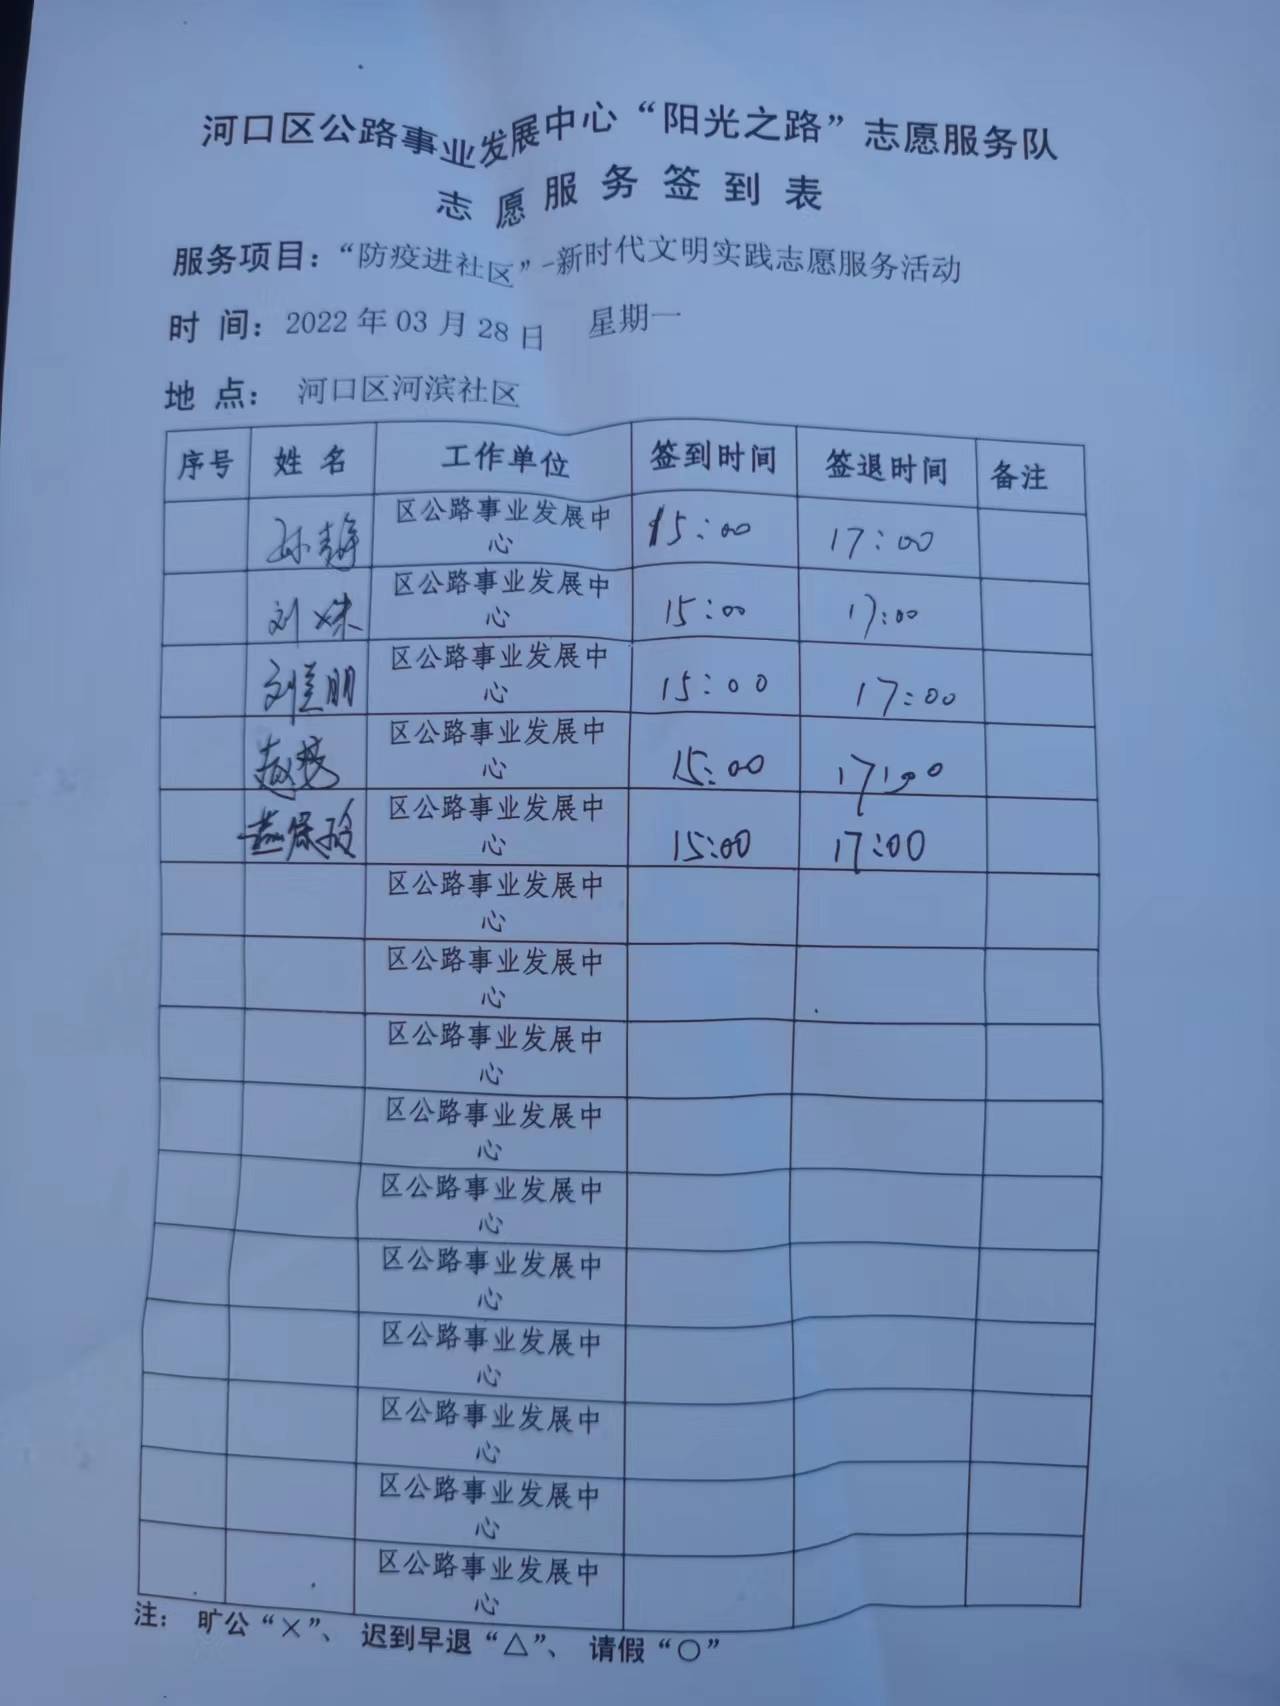 河口区公路事业发展中心“阳光之路”志愿服务队
志愿服务签到表
服务项目：“防疫进社区”-新时代文明实践志愿服务活动
时 间：2022年03月28日 星期一
地 点： 河口区河滨社区
序号 姓 名 工作单位 签到时间 签退时间 备注
孙静 区公路事业发展中心 15:00 17:00
刘姝 区公路事业发展中心 15:00 17:00
刘美朋 区公路事业发展中心 15:00 17:00
赵 区公路事业发展中心 15:00 17:00
保 区公路事业发展中心 15:00 17:00
区公路事业发展中心
区公路事业发展中心
区公路事业发展中心
区公路事业发展中心
区公路事业发展中心
区公路事业发展中心
区公路事业发展中心
区公路事业发展中心
区公路事业发展中心
区公路事业发展中心
注： 旷公“×”、 迟到早退“△”、 请假“○”